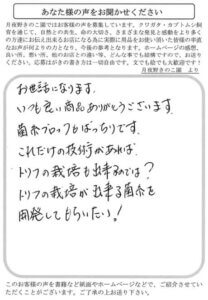 あなた様の声をお聞かせください
月夜野きのこ園ではお客様の声を募集しています。クワガタ・カブトムシ飼
育を通じて、自然との共生、命の大切さ、さまざまな発見と感動をより多く
の方達にお伝え出来るお店になる為に実際に商品をお使い頂いた皆様の率直
なお声が何よりの力となり、今後の参考となります。ホームページの感想、
楽しさ、想い、他のお店との違い等、どんな事でも結構ですので、お送りく
ださい。応募はがきの書き方は一切自由です。文でも絵でも大歓迎です！
月夜野きのこ園 より
お世話になります。
いつも良い商品ありがとうございます。
菌糸ブロックもばっちりです。
これだけの技術があれば、
トリフの栽培も出来るのでは？
トリフの栽培が出来る菌糸を
開発してもらいたい！
このお客様の声を書籍など紙面やホームページなどで、ご紹介させてい
ただくことがございます。ご了承の上お送り下さい。